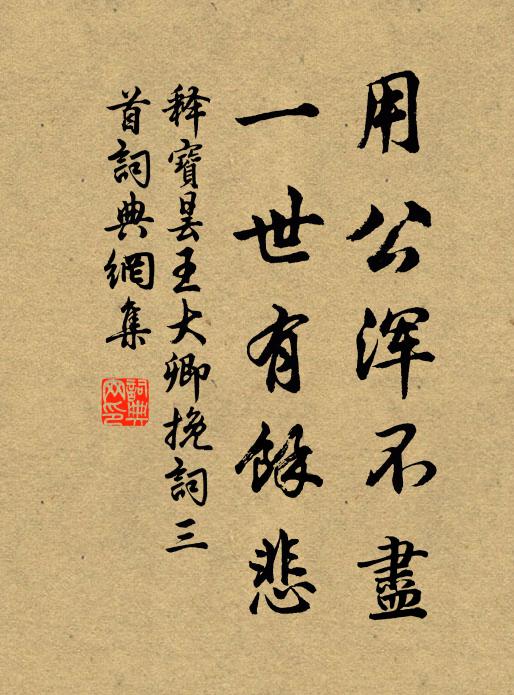 用公浑不盡
一世有餘悲
释寶昙王大卿挽詞三
首詞典網集
詞典網印